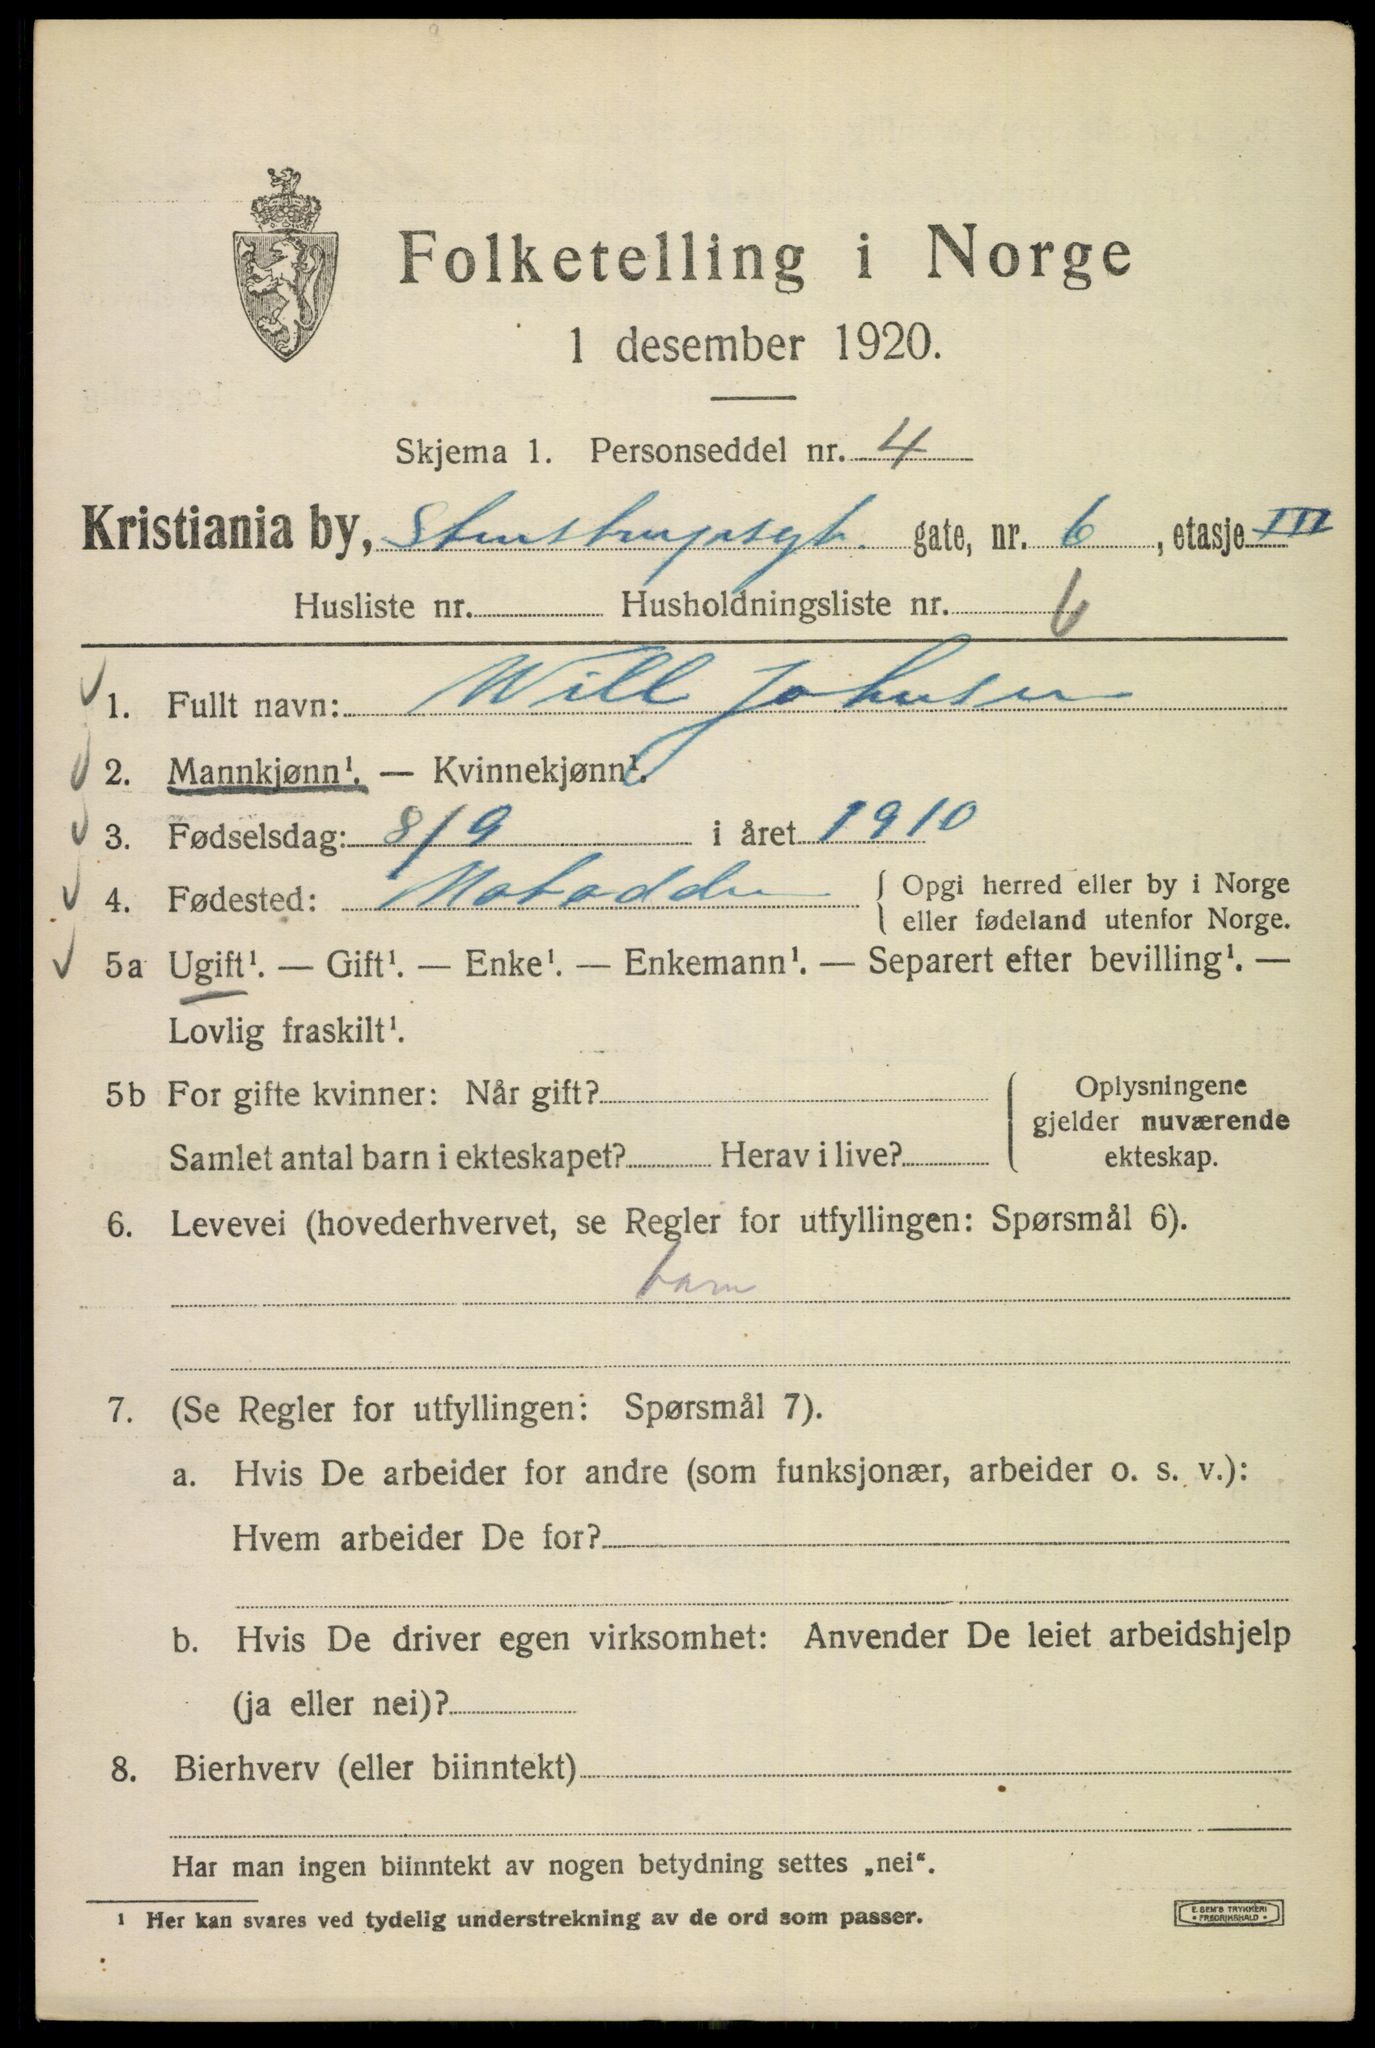 Folketelling i Norge
1 desember 1920.
Skjema 1. Personseddel nr. 4
Kristiania by, Stenstrupsgt. gate, nr. 6, etasje III
Husliste nr. Husholdningsliste nr. 6
1. Fullt navn: Will Johnsen
2. Mannkjønn¹. — Kvinnekjønn¹.
3. Fødselsdag: 8/9 i året 1910
4. Fødested: Notodden { Opgi herred eller by i Norge
eller fødeland utenfor Norge.
5a Ugift¹. — Gift¹. — Enke¹. — Enkemann¹. — Separert efter bevilling¹. —
Lovlig fraskilt¹.
5b For gifte kvinner: Når gift?
Samlet antal barn i ekteskapet? Herav i live?
Oplysningene
gjelder nuværende
ekteskap.
6. Levevei (hovederhvervet, se Regler for utfyllingen: Spørsmål 6).
barn
7. (Se Regler for utfyllingen: Spørsmål 7).
a. Hvis De arbeider for andre (som funksjonær, arbeider o. s. v.):
Hvem arbeider De for?
b. Hvis De driver egen virksomhet: Anvender De leiet arbeidshjelp
(ja eller nei)?
8. Bierhverv (eller biinntekt)
Har man ingen biinntekt av nogen betydning settes „nei“.
¹ Her kan svares ved tydelig understrekning av de ord som passer.
E. SEM'S TRYKKERI
• FREDRIKSHALD •